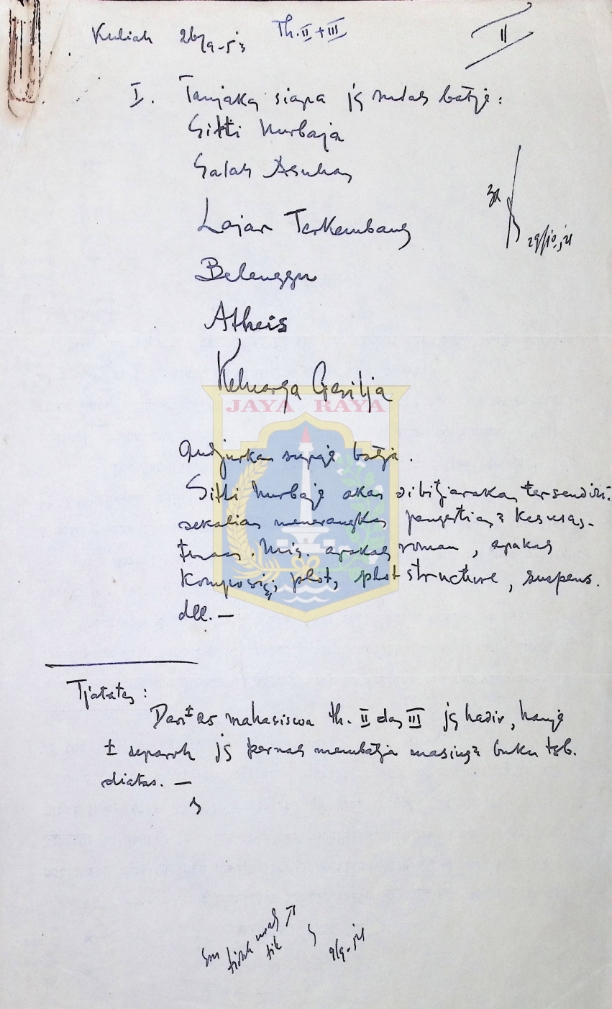 Kuliah 26/9-53 Th. II + III
II
I. Tanjakan siapa jg sudah batja:
Sitti Nurbaja
Salah Asuhan
Lajar Terkembang
Belenggu
Atheis
Keluarga Gerilja
JAYA RAYA
Andjurkan supaja batja.
Sitti Nurbaja akan dibitjarakan tersendiri
sekalian menerangkan pengertian2 kesusas-
teraan. Mis. apakah roman, apakah
komposisi, plot, plot structure, suspens.
dll. —
Tjatatan:
Dari ± 25 mahasiswa th. II dan III jg hadir, hanja
± separoh jg pernah membatja masing2 buku tsb.
diatas. —